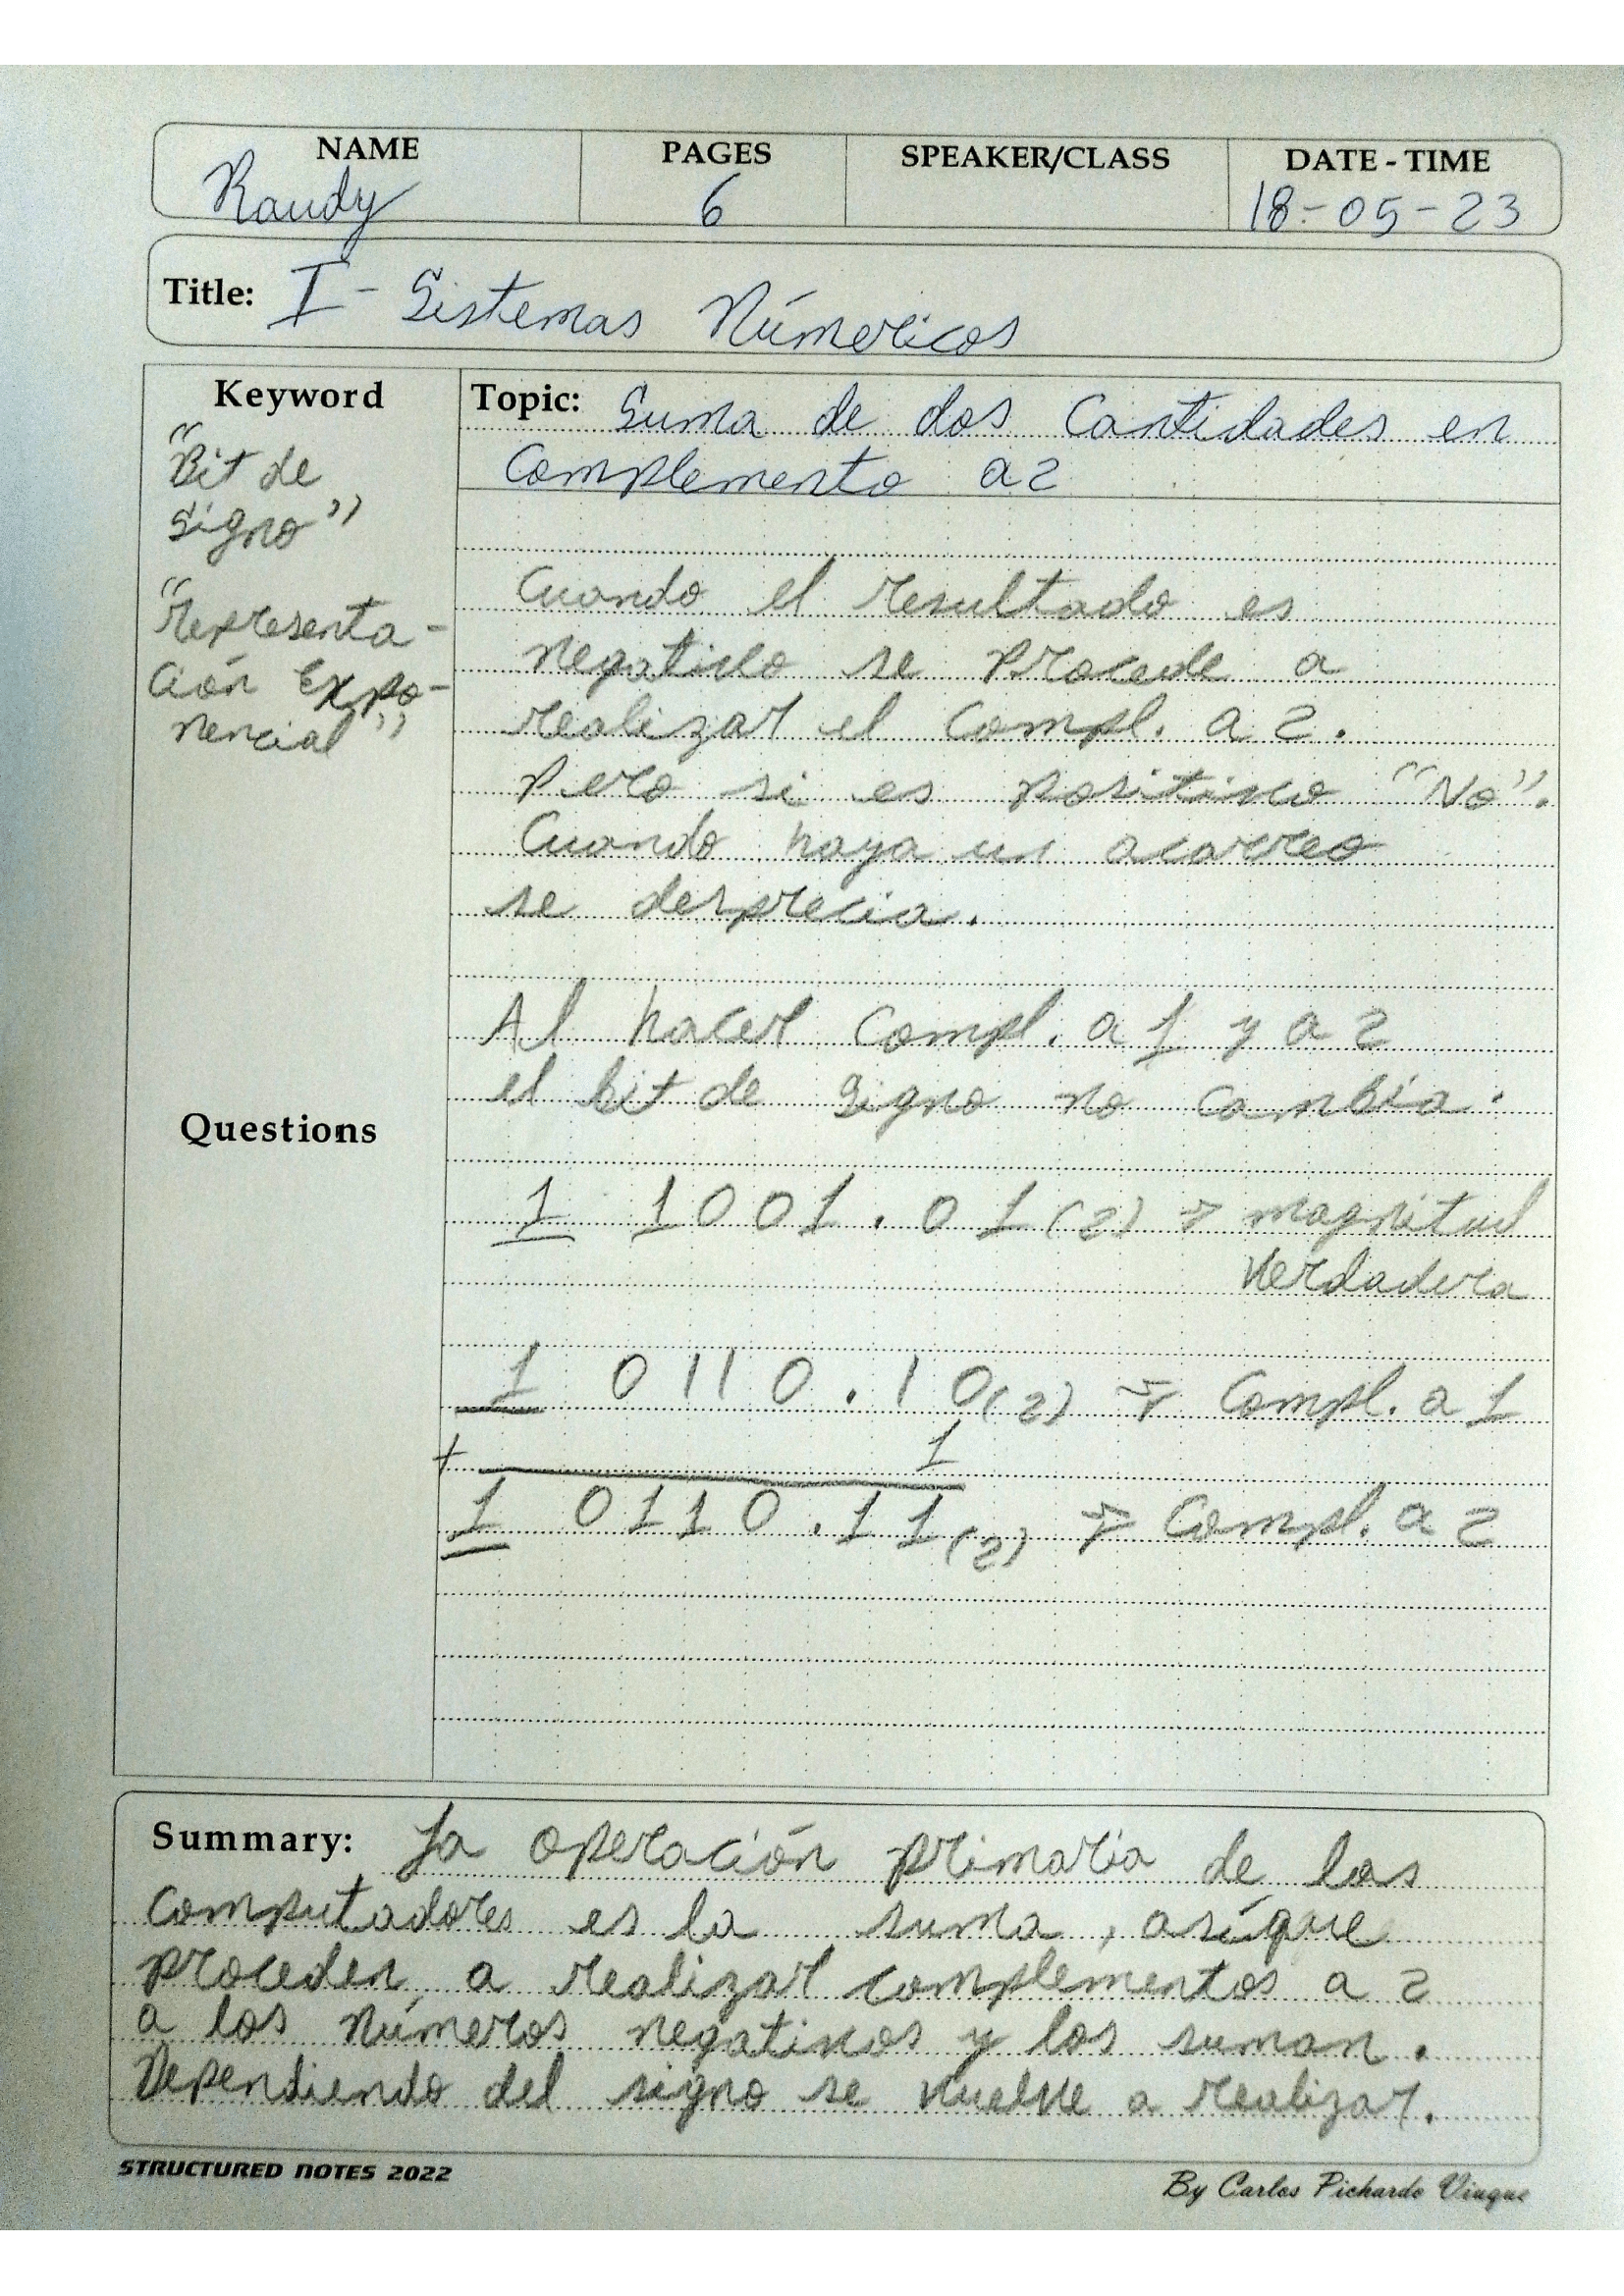 NAME PAGES SPEAKER/CLASS DATE - TIME
Randy 6 18-05-23
Title: I - Sistemas Númericos
Keyword
"Bit de
signo"
"Representa-
ción Expo-
nencial"
Topic: Suma de dos Cantidades en
Complemento a 2
Cuando el resultado es
negativo se procede a
realizar el Compl. a 2.
Pero si es positivo "No".
Cuando haya un acarreo
se desprecia.
Al hacer Compl. a 1 y a 2
el bit de signo no cambia.
Questions
1 1001.01(2) → magnitud
verdadera
1 0110.10(2) → Compl. a 1
+ 1
1 0110.11(2) → Compl. a 2
Summary: La operación primaria de las
computadores es la suma, asíque
proceden a realizar complementos a 2
a los números negativos y los suman.
Dependiendo del signo se vuelve a realizar.
STRUCTURED NOTES 2022
By Carlos Pichardo Viuque